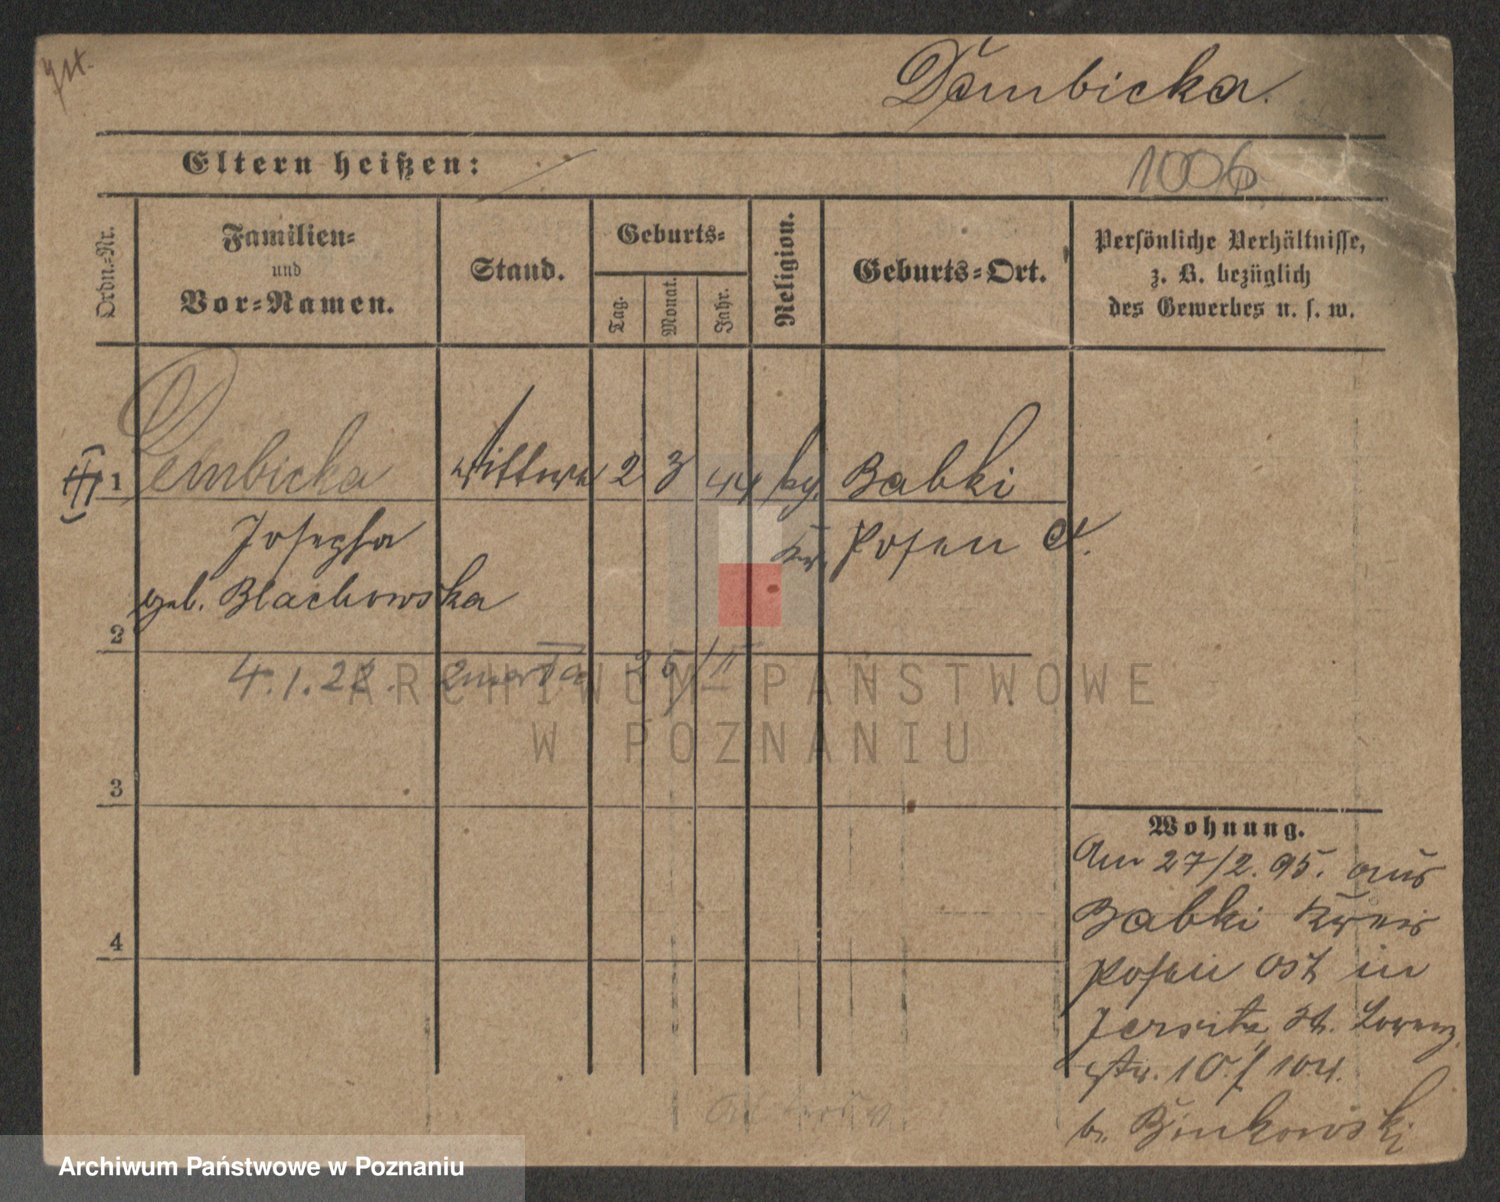 gst.
Dambicka.
Eltern heißen:
1006
Ordn.-Nr.
Familien-
und
Vor-Namen.
Stand.
Geburts-
Tag.
Monat.
Jahr.
Religion.
Geburts-Ort.
Persönliche Verhältnisse,
z. B. bezüglich
des Gewerbes u. s. w.
1 Dembicka Wittwe 2 3 44 kg. Babki
Josepha Kr. Posen O.
geb. Blachowska
2
4.1.22. zmarła
ARCHIWUM PAŃSTWOWE
W POZNANIU
3
Wohnung.
Am 27/2. 95. aus
Babki Kreis
Posen Ost in
Jersitz, St. Lorenz
str. 10./104.
b. Binkowski
4
Archiwum Państwowe w Poznaniu